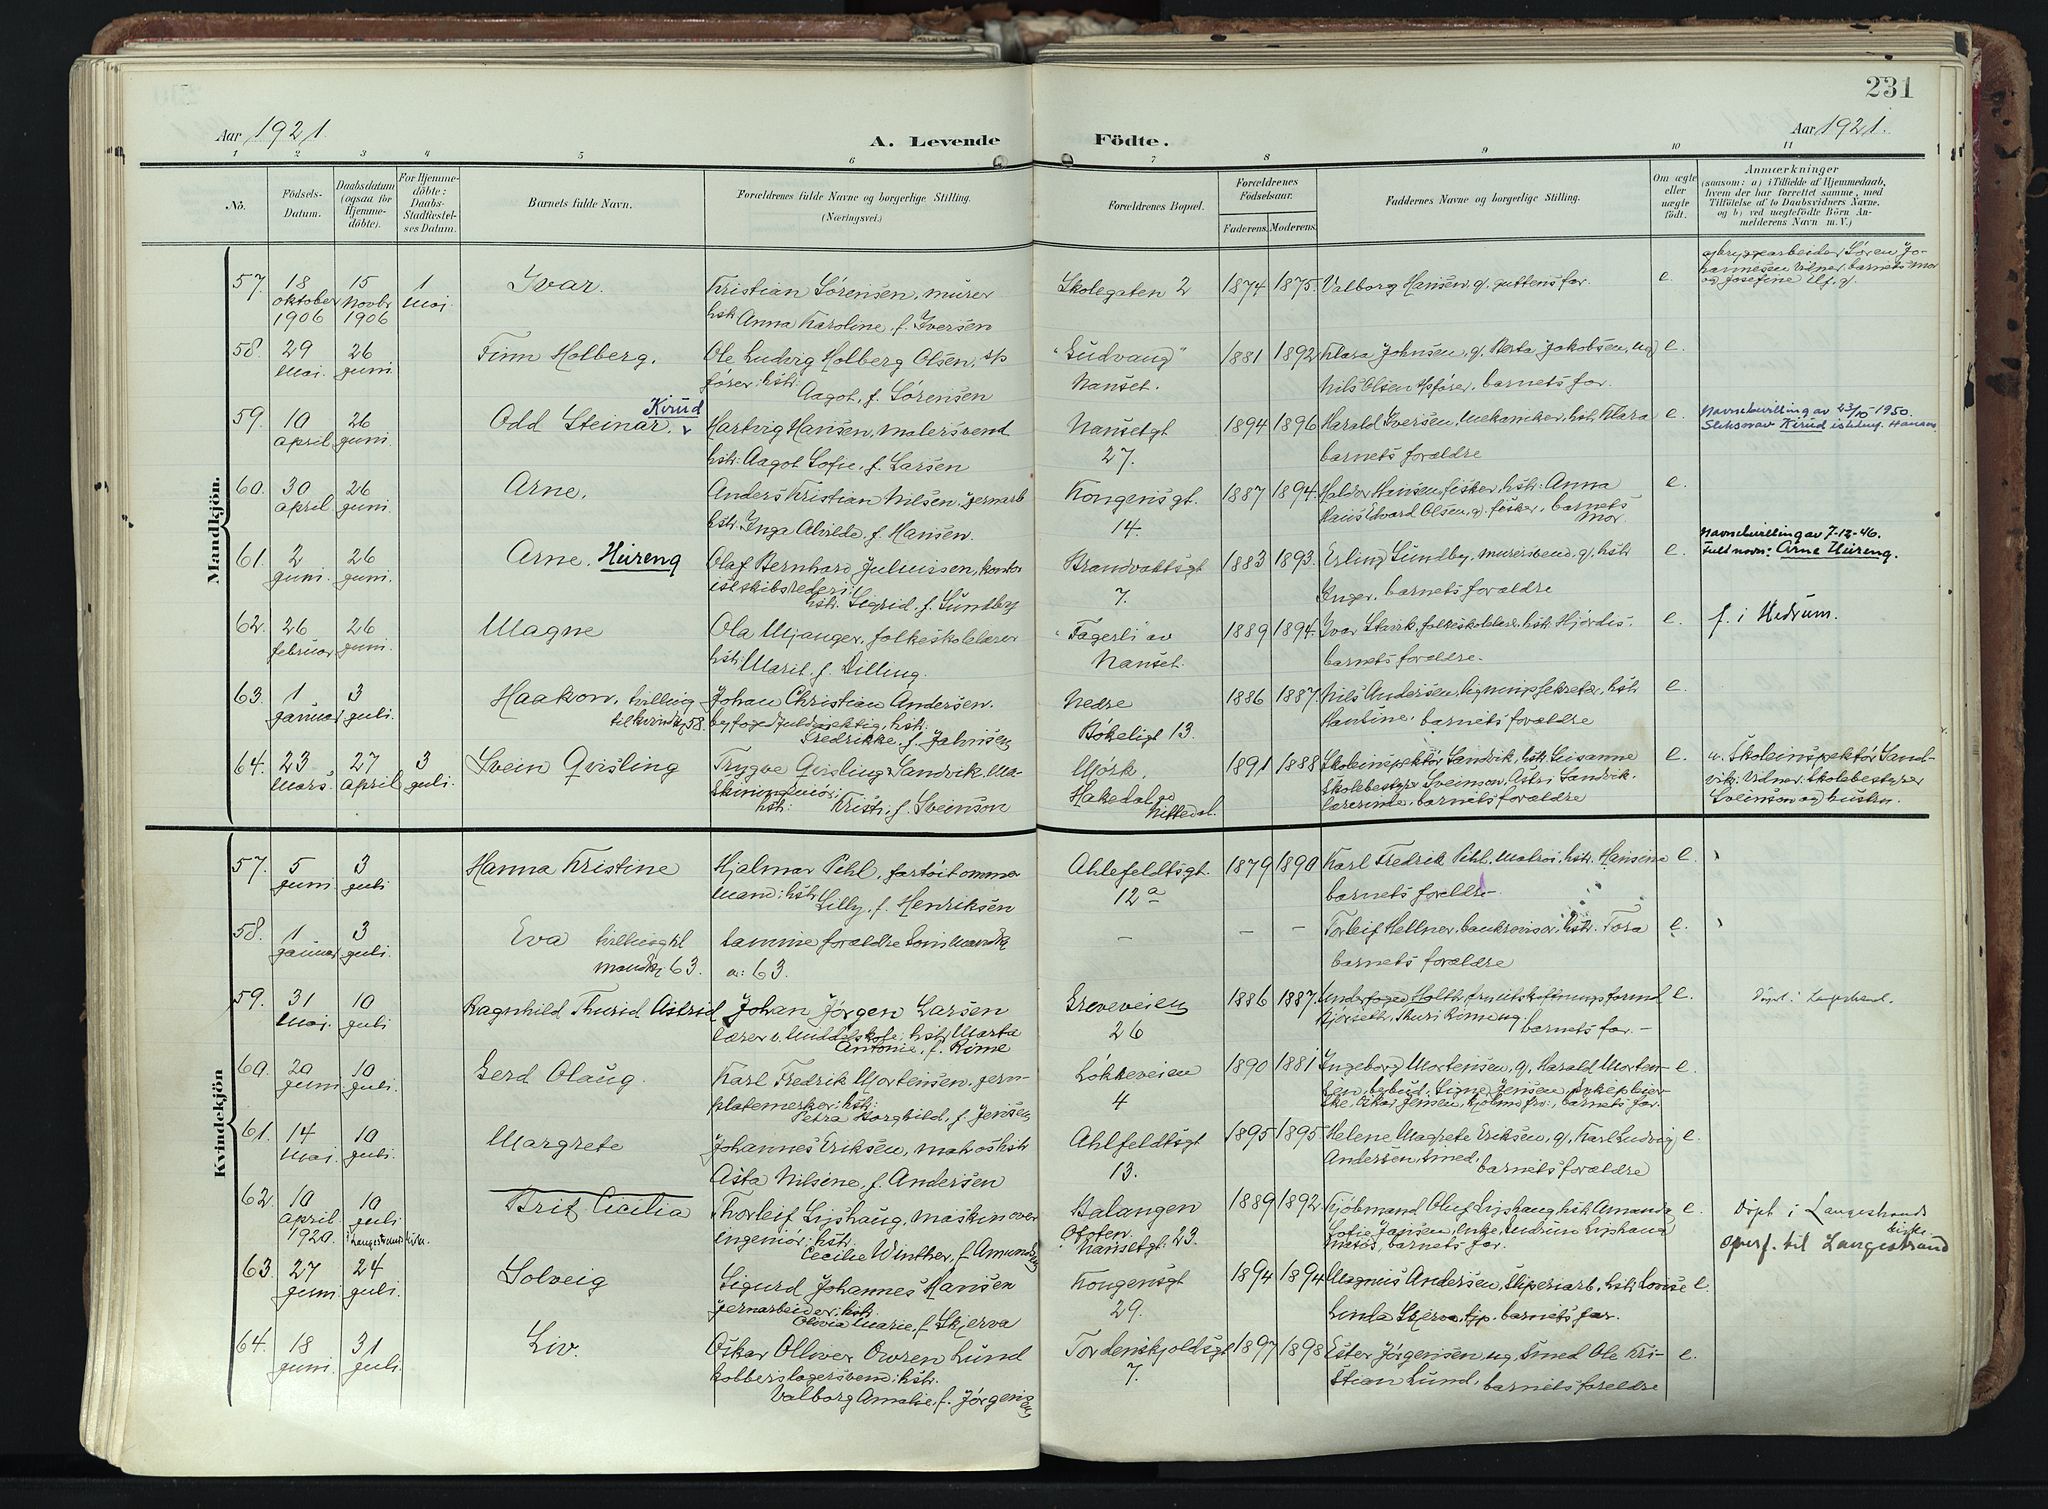 231
Aar 1921. A. Levende Födte. Aar 1921.
1 2 3 4 5 6 7 8 9 10 11
No.
Födsels-
Datum.
Daabsdatum
(ogsaa for
Hjemme-
döbte).
For Hjemme-
döbte:
Daabs-
Stadfæstel-
ses Datum.
Barnets fulde Navn.
Forældrenes fulde Navne og borgerlige Stilling.
(Næringsvei.)
Forældrenes Bopæl.
Forældrenes
Födselsaar.
Faderens. Moderens.
Faddernes Navne og borgerlige Stilling.
Om ægte
eller
uægte
födt.
Anmærkninger
(saasom: a) i Tilfælde af Hjemmedaab,
hvem der har forrettet samme, med
Tilföielse af to Daabsvidners Navne,
og b) ved uægtefödte Börn An-
melderens Navn m. V.)
Mandkjön.
57. 18 oktober 1906 15 Novbr 1906 1 Mai
Ivar.
Kristian Sørensen, murer
hst. Anna Karoline, f. Iversen
Skolegaten 2
1874 1875. Valborg Hansen, g. guttens for. e.
bryggearbeider Søren Jo-
hannesen Vidner, barnets mor
og Josefine
58. 29 Mai. 26 juni.
Finn Holberg.
Ole Ludvig Holberg Olsen,
fører, hst.
Aagot, f. Sørensen
Nanset.
1881 1892 Klara Johnsen, g. Berta Jakobsen, ug e.
Nils Olsen, barnets for.
59. 10 april 26 juni.
Odd Steinar. Kirud
Hartvig Hansen, malersvend
hst: Aagot Sofie, f. Larsen
Nansetgt
27.
1894 1896 Harald Iversen, mekaniker, hst. Klara e.
barnets forældre
Navnebevilling av 23/10-1950.
Kirud
60. 30 april 26 juni.
Arne.
Anders Kristian Nilsen, jernarb
hst. Inga Alvilde, f. Hansen.
Kongensgt.
14.
1887 1894. Haldor Hansen, fisker, hst: Anna e.
Hans Edvard Olsen, g. fisker, barnets
Mor.
61. 2 juni. 26 juni.
Arne. Heireng
Olaf Bernhard Juliussen,
hst. Sigrid, f. Sundby
Brandvaktsgt
7.
1883 1893. Erling Sundby, murersvend, g, hst e.
Inger, barnets forældre
Navnebevilling av 7-12-46.
Fuld navn: Arne Heireng.
62. 26 februar 26 juni.
Magne
Ola Mjanger, folkeskolelærer
hst. Maril, f. Dilling.
"Fagerli" av
Nanset.
1889 1894. Ivar Stavrk, folkeskolelærer, hst. Hjørdis e.
barnets forældre.
f. i Hedrum.
63. 1 januar 3 juli.
Haakon, tvilling
til kvindkj 58.
Johan Christian Andersen.
byfogedfuldmektig, hst.
Fredrikke, f. Jahnsen
Nedre
Bøkeligt 13.
1886 1887. Nils Andersen, ligningssekretær, hst e.
Hansine. barnets forældre
64. 23 Mars. 27 april 3 juli.
Svein Qvisling
Trygve Qvisling Sandvik, Ma-
skiningeniør;
hst: Kristi, f. Sveinson
Mørk,
Hakedal og
Nittedal.
1891 1888 Skoleinspektør Sandvik, hst. Susanne e.
Skolebestyrer Sveinson, Astri Sandvik.
lærerinde, barnets forældre
v. Skoleinspektør Sand-
vik; Vidner: Skolebestyrer
Sveinson og hustru.
Kvindekjön
57. 5 juni 3 juli
Hanna Kristine
Hjalmar Pihl, fartøitømmer
mand; hst. Lilly, f. Henriksen
Ahlefeldtsgt.
12a
1879 1890 Karl Fredrik Pihl, Matros, hst. Hansine e.
barnets forældre
58. 1 januar 3 juli.
Eva tvilling til
mandkj 63.
Samme forældre som mandkj
nr: 63.
– – – Torleif Hellner, bankrevisor, hst. Tora e.
barnets forældre
59. 31 Mai. 10 juli
Ragnhild Thurid Astrid
Johan Jørgen Larsen
lærer v. Middelskole, hst. Marta
Antonie, f. Rime
Greveveien
26
1886 1887. Underfoged Holth, e.
barnets for. –
Døpt i Langestrand.
60. 20 juni. 10 juli.
Gerd Olaug.
Karl Fredrik Mortensen, jern-
platemerker; hst.
Petra Borghild, f. Jensen
Løkkeveien
4
1890 1881 Ingeborg Mortensen, g, Harald Morten- e.
sen, bybud, Signe Jensen, sykepleier-
ske, Oskar Jensen, barnets for.
61. 14 Mai. 10 juli.
Margrete
Johannes Eriksen, matros hst
Asta Nilsine, f. Andersen
Ahlfeldtsgt
13.
1895 1895. Helene Magrete Eriksen, g, Karl Ludvig e.
Andersen, smed, barnets forældre
62. 10 april 1920. 10 juli.
Brit Cicilia
Thorleif Lipshaug, maskinover
ingeniør; hst.
Cecilie Winther, f. Amundsen
Balangen
Ofoten.
Nansetgt. 23.
1889 1892. Kjøbmand Oluf Lipshaug, hst. Amanda e.
Sofie Jansen, enke, Gudrun Lipshaug
barnets far.
Døpt i Langestrands
kirke
Overf. til Langestrand
63. 27 juni. 24 juli.
Solveig
Sigurd Johannes Hansen
jernarbeider; hst.
Olivia Marie, f. Skjerva
Kongensgt
29.
1894 1894 Magnus Andersen, sliperiarb, hst. Lovise e.
Linda Skjerva, tjp. barnets for.
64. 18 juni. 31 juli.
Liv.
Oskar Olliver Owren Lund
kobberslagersvend; hst.
Valborg Amalie, f. Jørgensen
Tordenskjoldsgt
7.
1897 1898 Ester Jørgensen, ug, Smed Ole Kri- e.
stian Lund, barnets foreldre